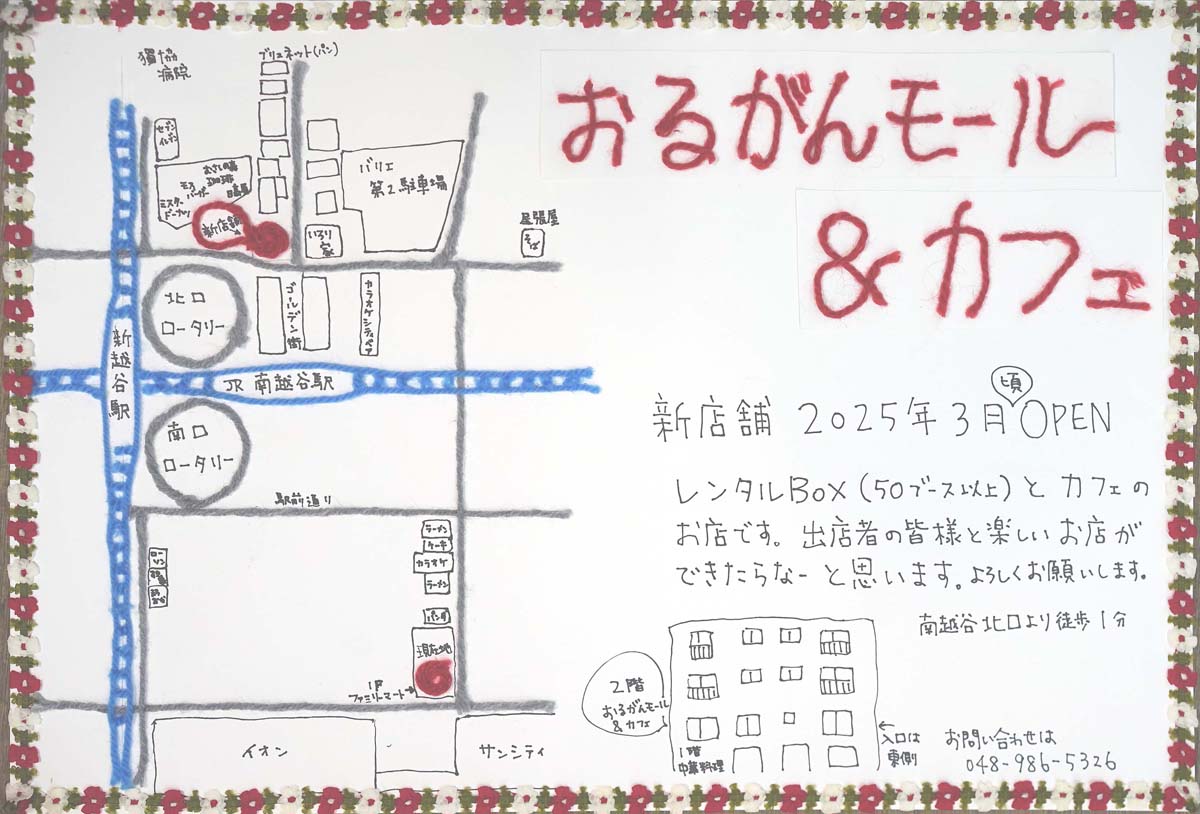 おるがんモール
&カフェ
新店舗 2025年3月頃OPEN
レンタルBOX(50ブース以上)とカフェの
お店です。出店者の皆様と楽しいお店が
できたらなーと思います。よろしくお願いします。
南越谷北口より徒歩1分
2階
おるがんモール
&カフェ
1階
中華料理
←
入口は
東側
お問い合わせは
048-986-5326
獨協
病院
ブリュネット(パン)
セブン
イレブン
むさしの森
珈琲
日高屋
モス
バーガー
ミスター
ドーナツ
新店舗
バリエ
第2駐車場
いろり
家
尾張屋
そば
北口
ロータリー
ゴールデン街
カラオケシティベア
新越谷駅
JR 南越谷駅
南口
ロータリー
駅前通り
ローソン
ラーメン
ケーキ
カラオケ
ラーメン
パンダ
現在地
1F
ファミリーマート→
イオン
サンシティ